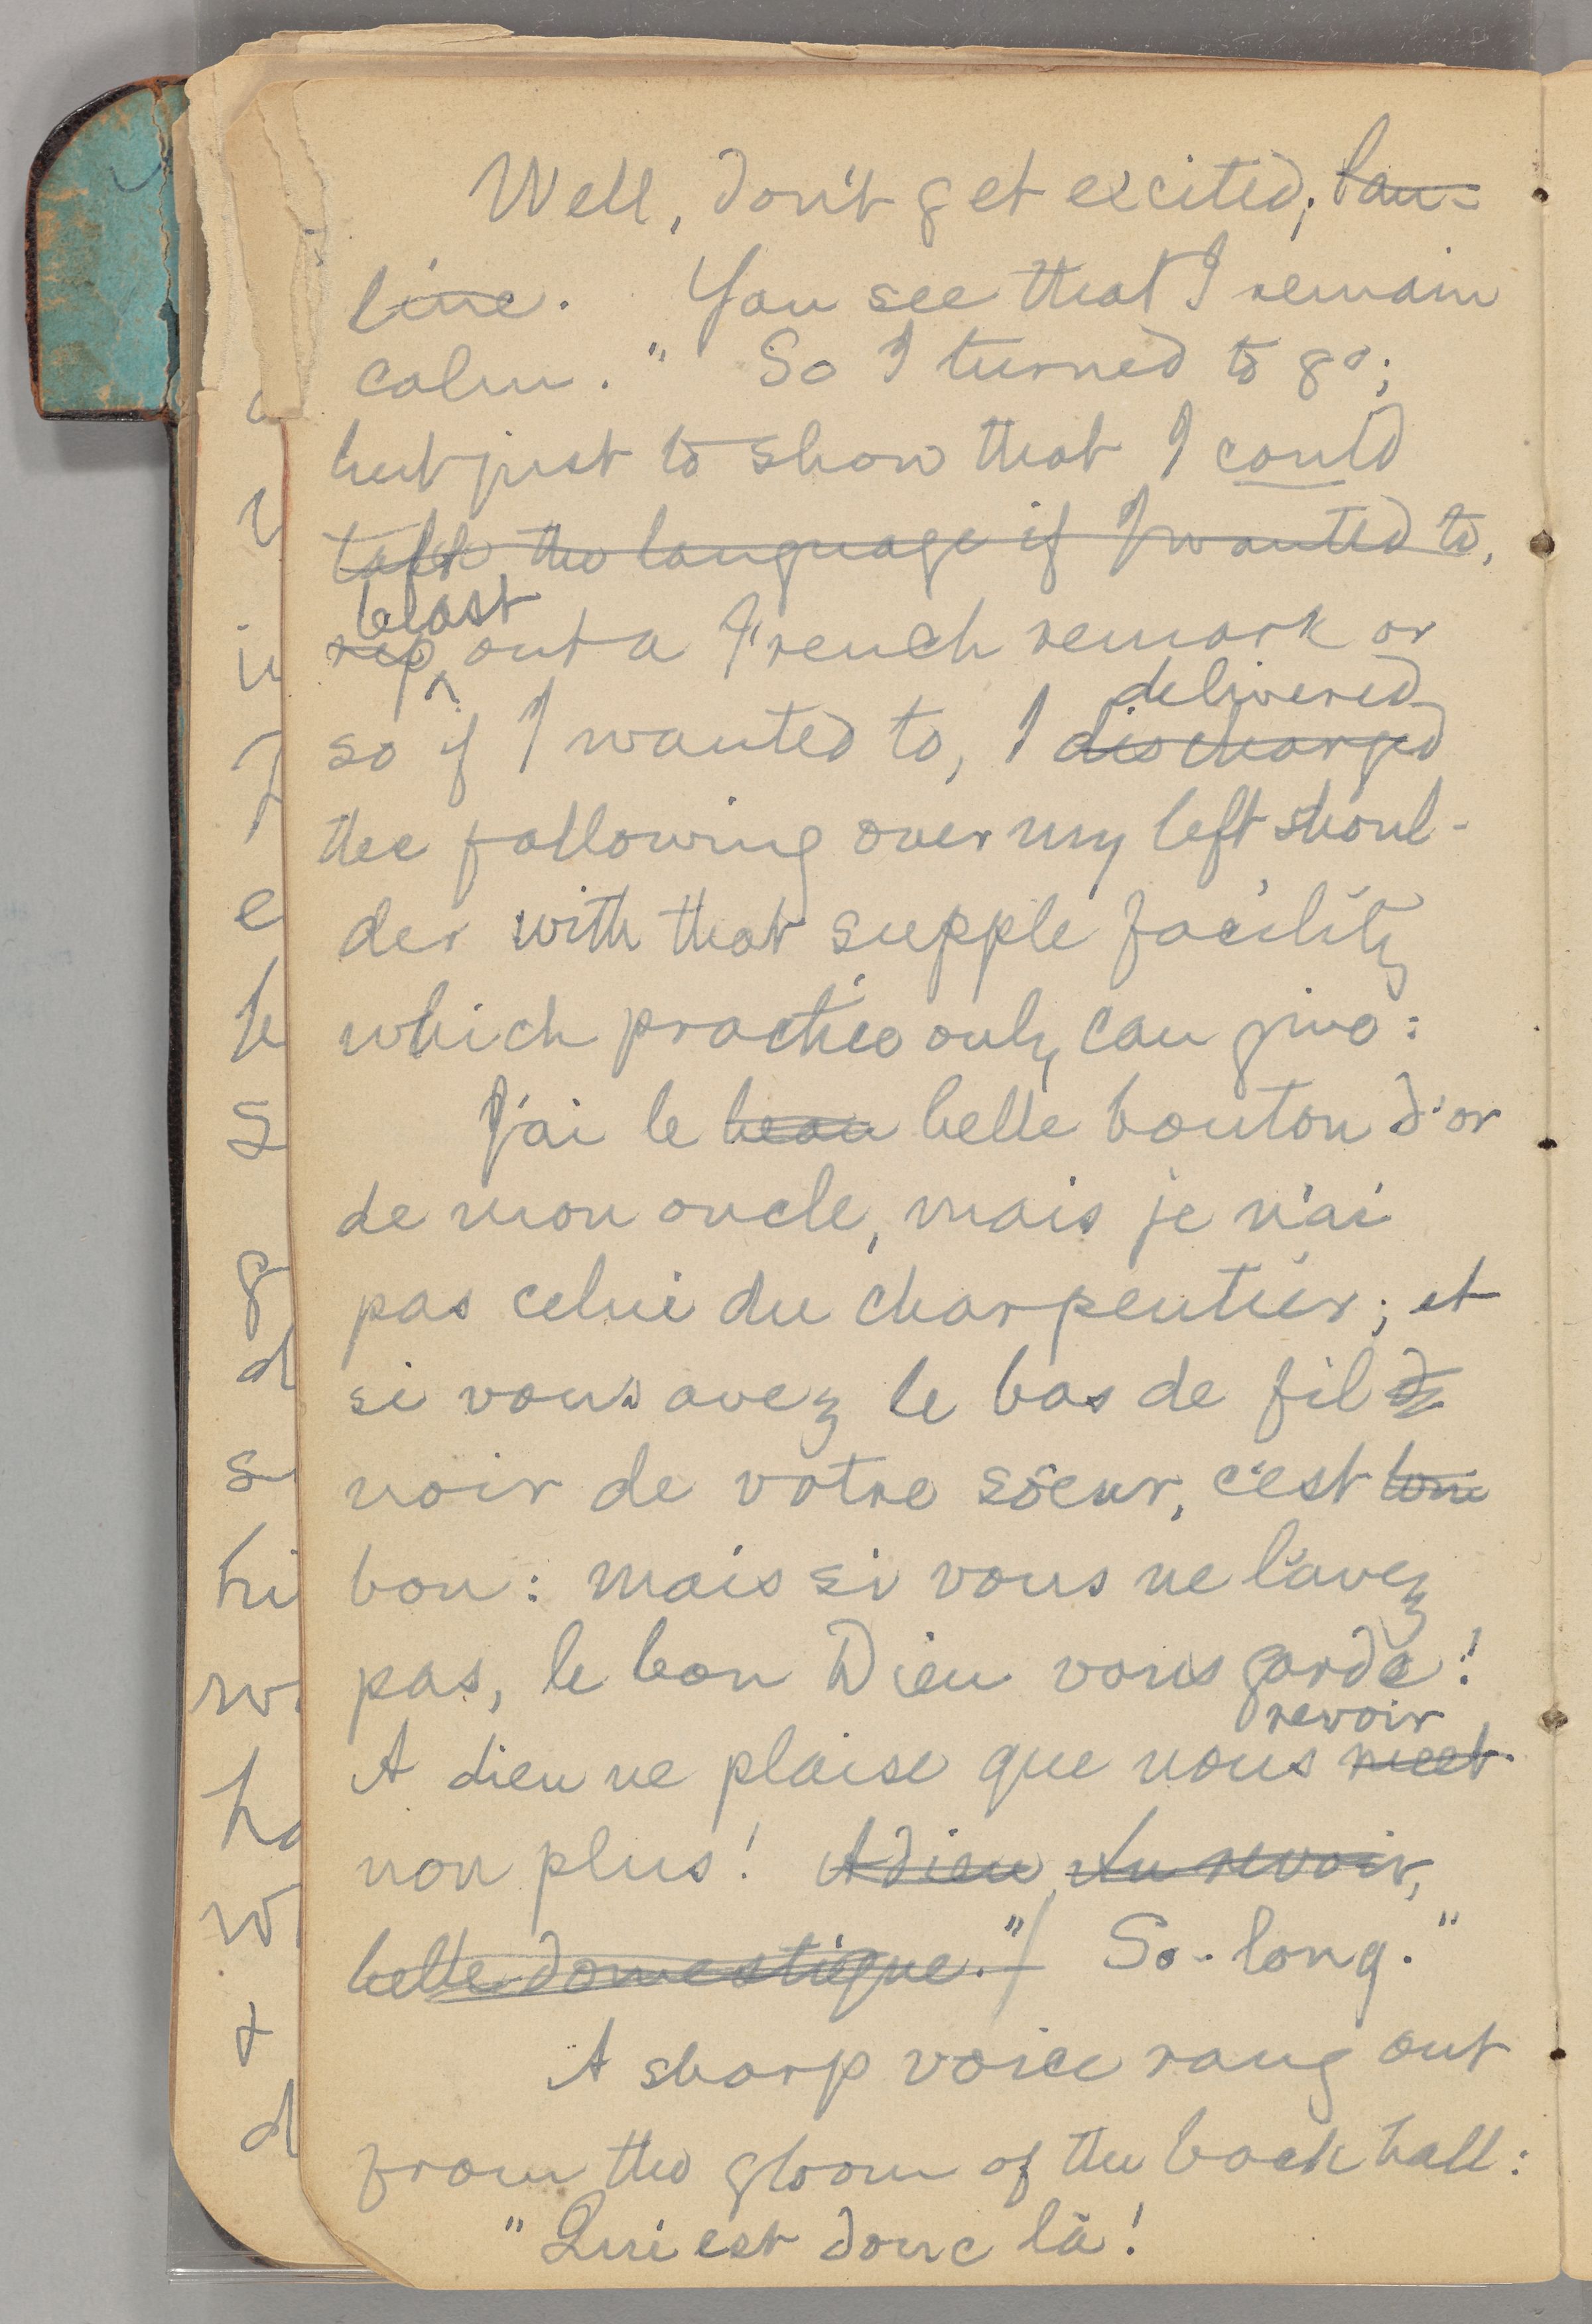 Well, don't get excited, Pau-
line. You see that I remain
calm." So I turned to go;
but just to show that I could
talk the language if I wanted to,
blast
rip out a French remark or
delivered
so if I wanted to, I discharged
the following over my left shoul-
der with that supple facility
which practice only can give:
J'ai le beau belle bouton d'or
de mon oncle, mais je n'ai
pas celui du charpentier; et
si vous avez le bas de fil
noir de votre soeur, c'est
bon: mais si vous ne l'avez
pas, le bon Dieu vous garde!
revoir
A dieu ne plaise que nous meet
non plus! Adieu, Au revoir,
belle domestique." So-long."
A sharp voice rang out
from the gloom of the back hall:
"Qui est donc là!